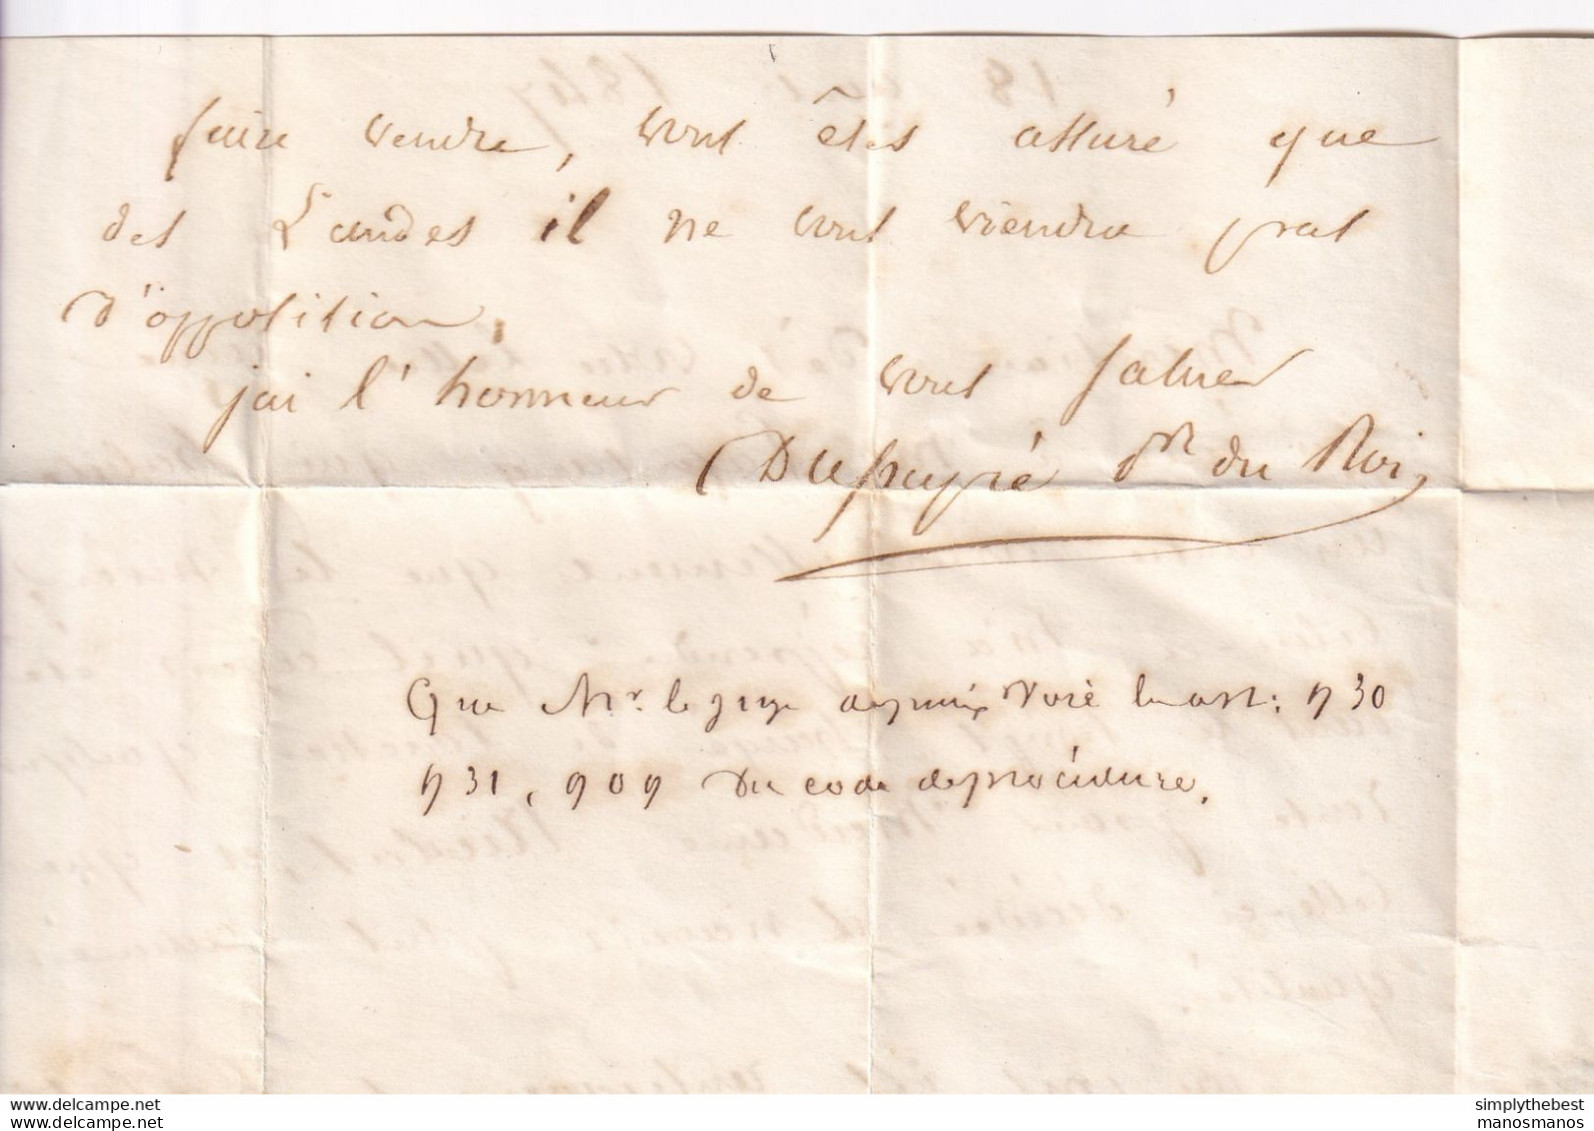 faire vendre, vous êtes assuré que
des Landes il ne vous viendra pas
d'opposition.
jai l'honneur de vous saluer
Dupeyré Pr du Roi
Que Mr. le juge depuix voie les art. 930
931, 909 du code deprocédure.
www.delcampe.net
www.delcampe.net
simplythebest
manosmanos